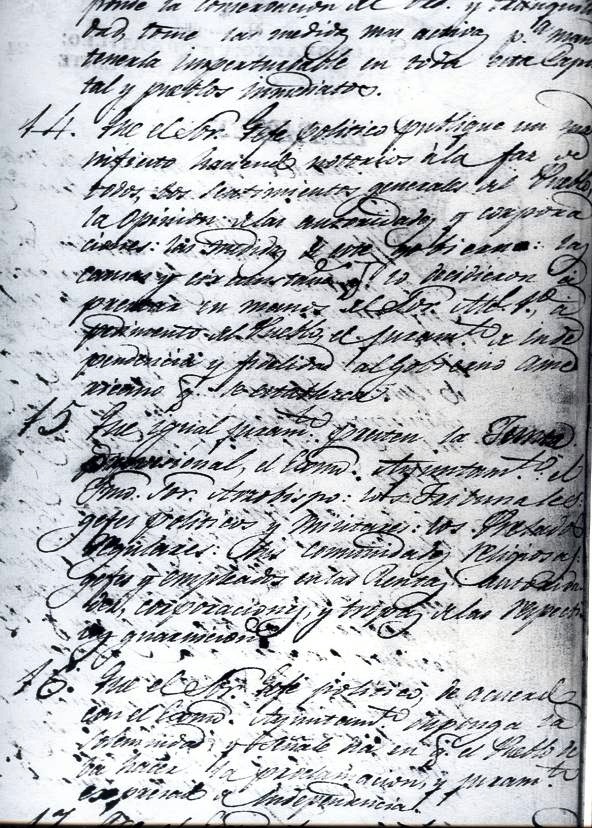 pone la conservacion del ord. y tranquili
dad, tome las medidas mas activas pª man
tenerla imperturbable en toda esta Capi
tal y pueblos inmediatos.
14. Que el Sor. Gefe politico publique un ma
nifiesto haciendo notorios à la faz de
todos, los sentimientos generales del Pueblo,
la opinion de las autoridades y corpora
ciones: las medidas de este Gobierno: las
causas y circunstancias q. lo decidieron á
prestar en manos del Sor. Alc. 1º, á
pedimento del Pueblo, el juramto. de inde
pendencia y fidelidad al Gobierno Ame
ricano q. se establezca.
15 Que igual juramto. presten la Junta
provisional, el Exmo. Ayuntamto. el
Ilmo. Sor. Arzobispo: los Tribunales
gefes politicos y militares: los Prelados
regulares: sus comunidades religiosas
Gefes y empleados en las Rentas, autorida
des, corporaciones, y tropas de las respecti
vas guarniciones.
16. Que el Sor. Gefe politico, de acuerdo
con el Exmo. Ayuntamto. disponga la
solemnidad y señale dia en q. el Pueblo de
ba hacer la proclamacion, y juramto.
expresado de Independencia.
17.